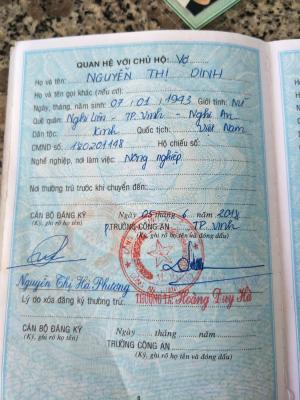 QUAN HỆ VỚI CHỦ HỘ: Vợ
Họ và tên: NGUYỄN THỊ DINH
Họ và tên gọi khác (nếu có):
Ngày, tháng, năm sinh: 07/01/1943 Giới tính: Nữ
Quê quán: Nghi Liên - TP. Vinh - Nghệ An
Dân tộc: Kinh Quốc tịch: Việt Nam
CMND số: 180201148 Hộ chiếu số:
Nghề nghiệp, nơi làm việc: Nông nghiệp
Nơi thường trú trước khi chuyển đến:
Ngày 05 tháng 6 năm 2018
CÁN BỘ ĐĂNG KÝ P.TRƯỞNG CÔNG AN TP. Vinh
(Ký, ghi rõ họ tên) (Ký, ghi rõ họ tên và đóng dấu)
Nguyễn Thị Hà Phương Hoàng Duy Hà
Lý do xóa đăng ký thường trú:
Ngày tháng năm
CÁN BỘ ĐĂNG KÝ TRƯỞNG CÔNG AN
(Ký, ghi rõ họ tên) (Ký, ghi rõ họ tên và đóng dấu)